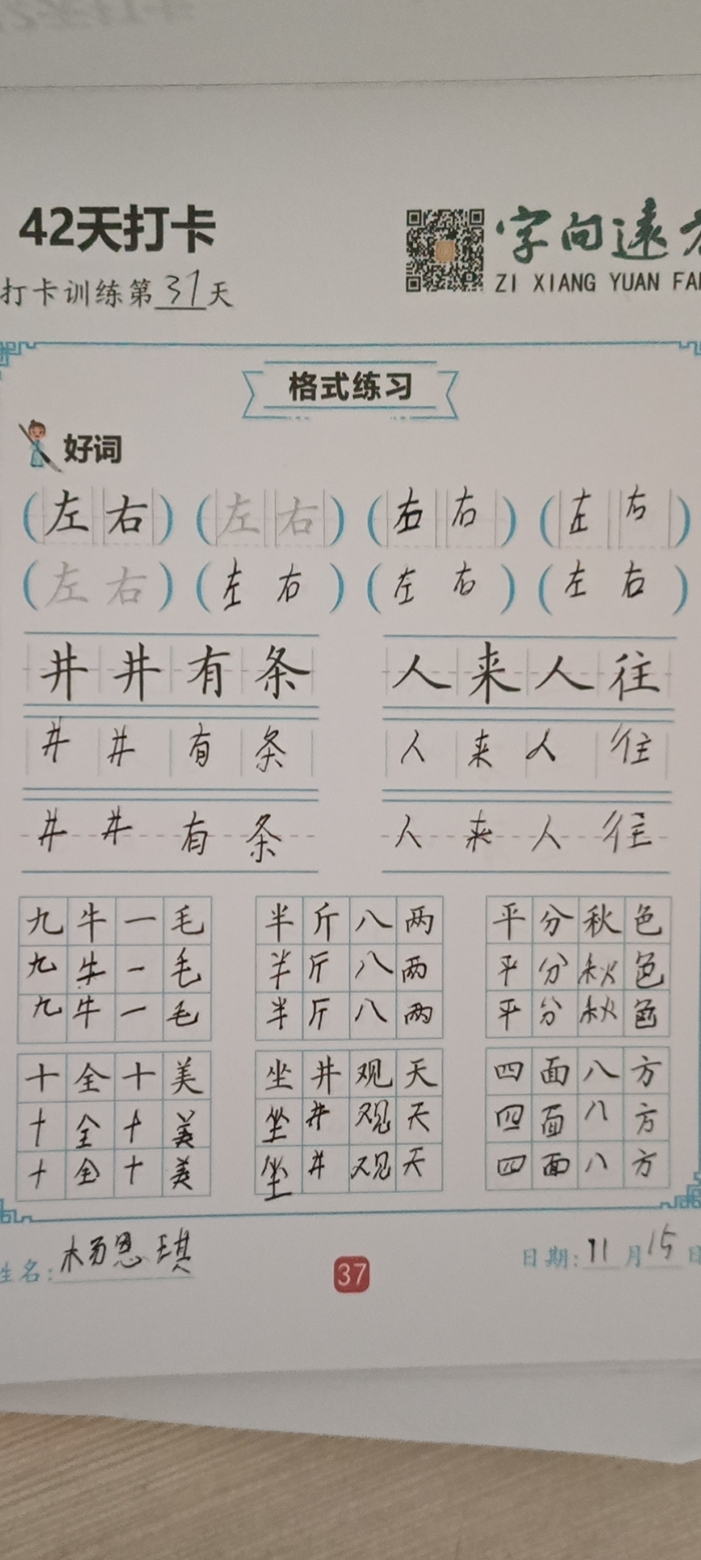 42天打卡
字向遠方
打卡训练第37天
ZI XIANG YUAN FA
格式练习
好词
(左右) (左右) (右右) (左右)
(左右) (左右) (左右) (左右)
井井有条 人来人往
井井有条 人来人往
井井有条 人来人往
九牛一毛 半斤八两 平分秋色
九牛一毛 半斤八两 平分秋色
九牛一毛 半斤八两 平分秋色
十全十美 坐井观天 四面八方
十全十美 坐井观天 四面八方
十全十美 坐井观天 四面八方
姓名:杨恩琪 37 日期:11月15日